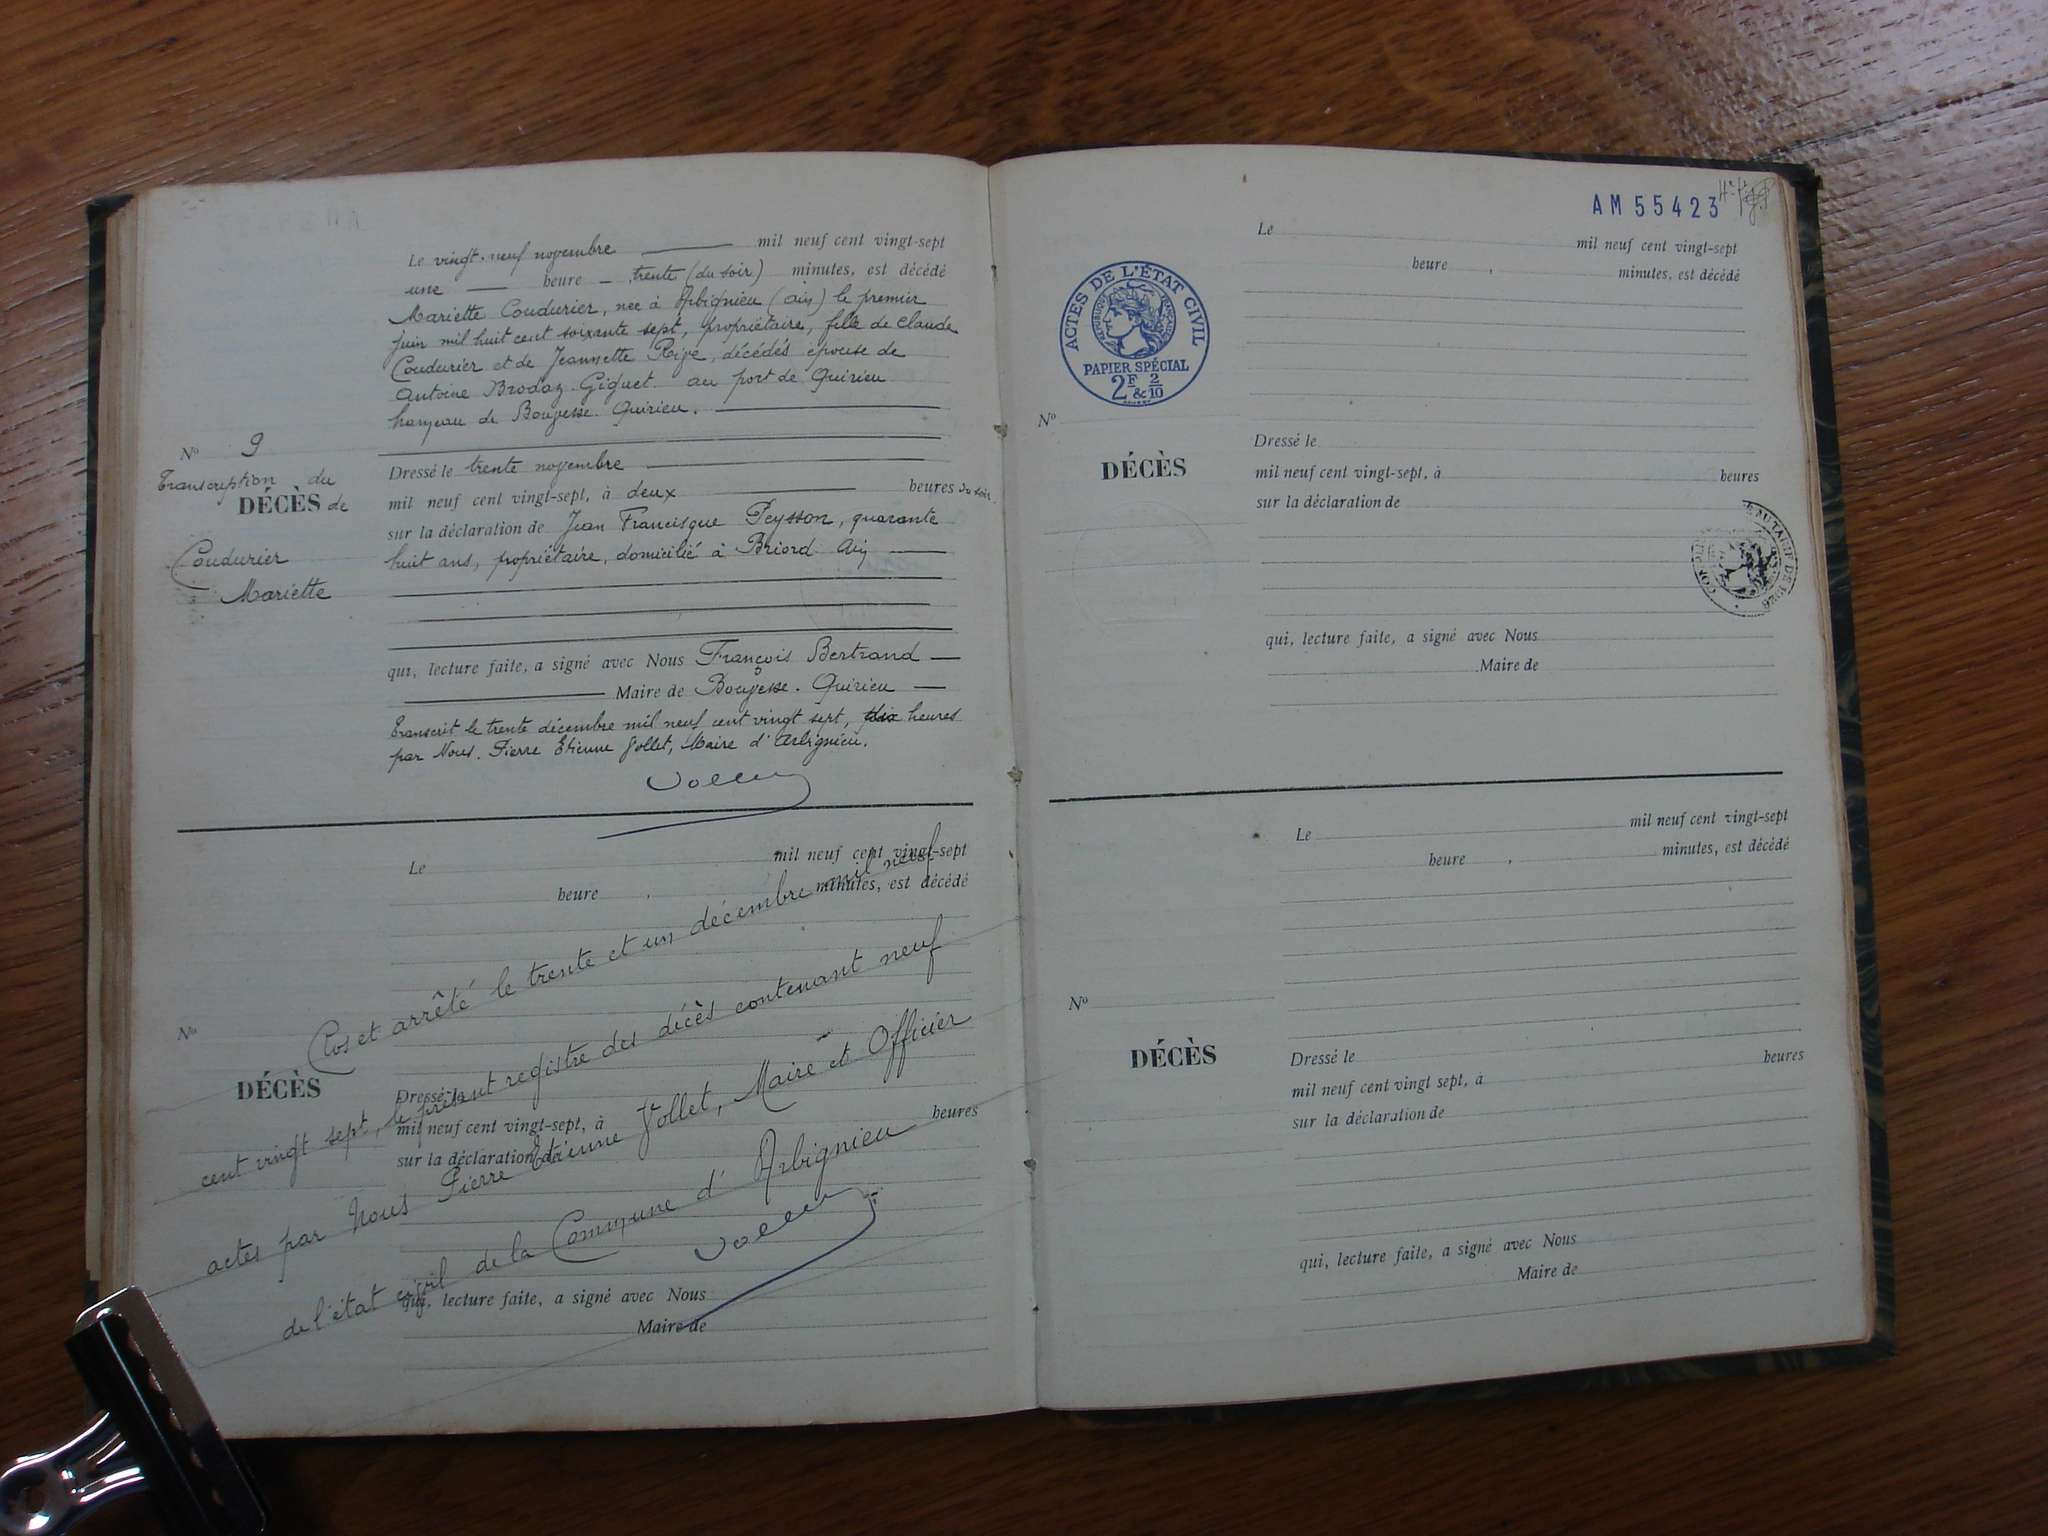 Le vingt-neuf novembre mil neuf cent vingt-sept
une heure trente (du soir) minutes, est décédé
Mariette Coudurier, née à Arbignieu (ain) le premier
juin mil huit cent soixante sept, propriétaire, fille de Claude
Coudurier et de Jeannette, décédés épouse de
Antoine Brodaz-Giguet au port de Quirieu
hameau de Bouvesse-Quirieu.
N° 9
Transcription du
DÉCÈS de
Coudurier
Mariette
Dressé le trente novembre
mil neuf cent vingt-sept, à deux heures du soir
sur la déclaration de Jean Francisque Peysson, quarante
huit ans, propriétaire, domicilié à Briord Ain
qui, lecture faite, a signé avec Nous François Bertrand
Maire de Bouvesse-Quirieu
Transcrit le trente décembre mil neuf cent vingt sept, dix heures
par Nous. Pierre Etienne Vollet, Maire d'Arbignieu.
Vollet
Le mil neuf cent vingt-sept
heure , minutes, est décédé
N°
DÉCÈS
Dressé le
mil neuf cent vingt-sept, à heures
sur la déclaration de
qui, lecture faite, a signé avec Nous
Maire de
Clos et arrêté le trente et un décembre mil neuf
cent vingt sept, le présent registre des décès contenant neuf
actes par Nous Pierre Etienne Vollet, Maire et Officier
de l'état civil de la Commune d'Arbignieu
Vollet
AM 55423
ACTES DE L'ÉTAT CIVIL
RÉPUBLIQUE FRANÇAISE
PAPIER SPÉCIAL
2F & 2/10
Le mil neuf cent vingt-sept
heure , minutes, est décédé
N°
DÉCÈS
Dressé le
mil neuf cent vingt-sept, à heures
sur la déclaration de
AU TARIF DE
qui, lecture faite, a signé avec Nous
Maire de
Le mil neuf cent vingt-sept
heure , minutes, est décédé
N°
DÉCÈS
Dressé le heures
mil neuf cent vingt sept, à
sur la déclaration de
qui, lecture faite, a signé avec Nous
Maire de